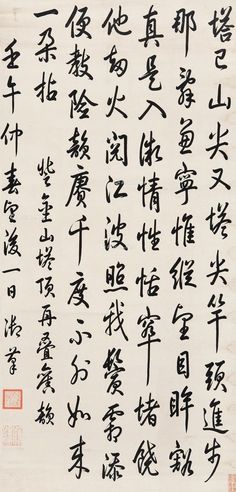 塔已山尖又塔尖竿頭進步
那辭兼寧惟縱望目眸豁
真是入微情性恬窣堵饒
他劫火閱江波照我鬢霜添
便教險韻賡千度不外如來
一朵拈
登金山塔頂再疊舊韻
壬午仲春望後一日御筆